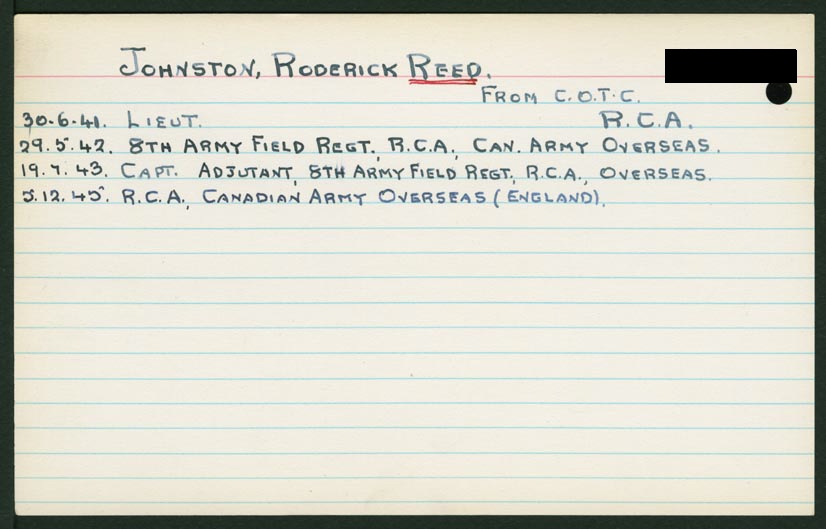 JOHNSTON, RODERICK REED.
FROM C.O.T.C.
30.6.41. LIEUT. R.C.A.
29.5.42. 8TH ARMY FIELD REGT., R.C.A., CAN. ARMY OVERSEAS.
19.7.43. CAPT. ADJUTANT, 8TH ARMY FIELD REGT., R.C.A., OVERSEAS.
5.12.45. R.C.A., CANADIAN ARMY OVERSEAS (ENGLAND).